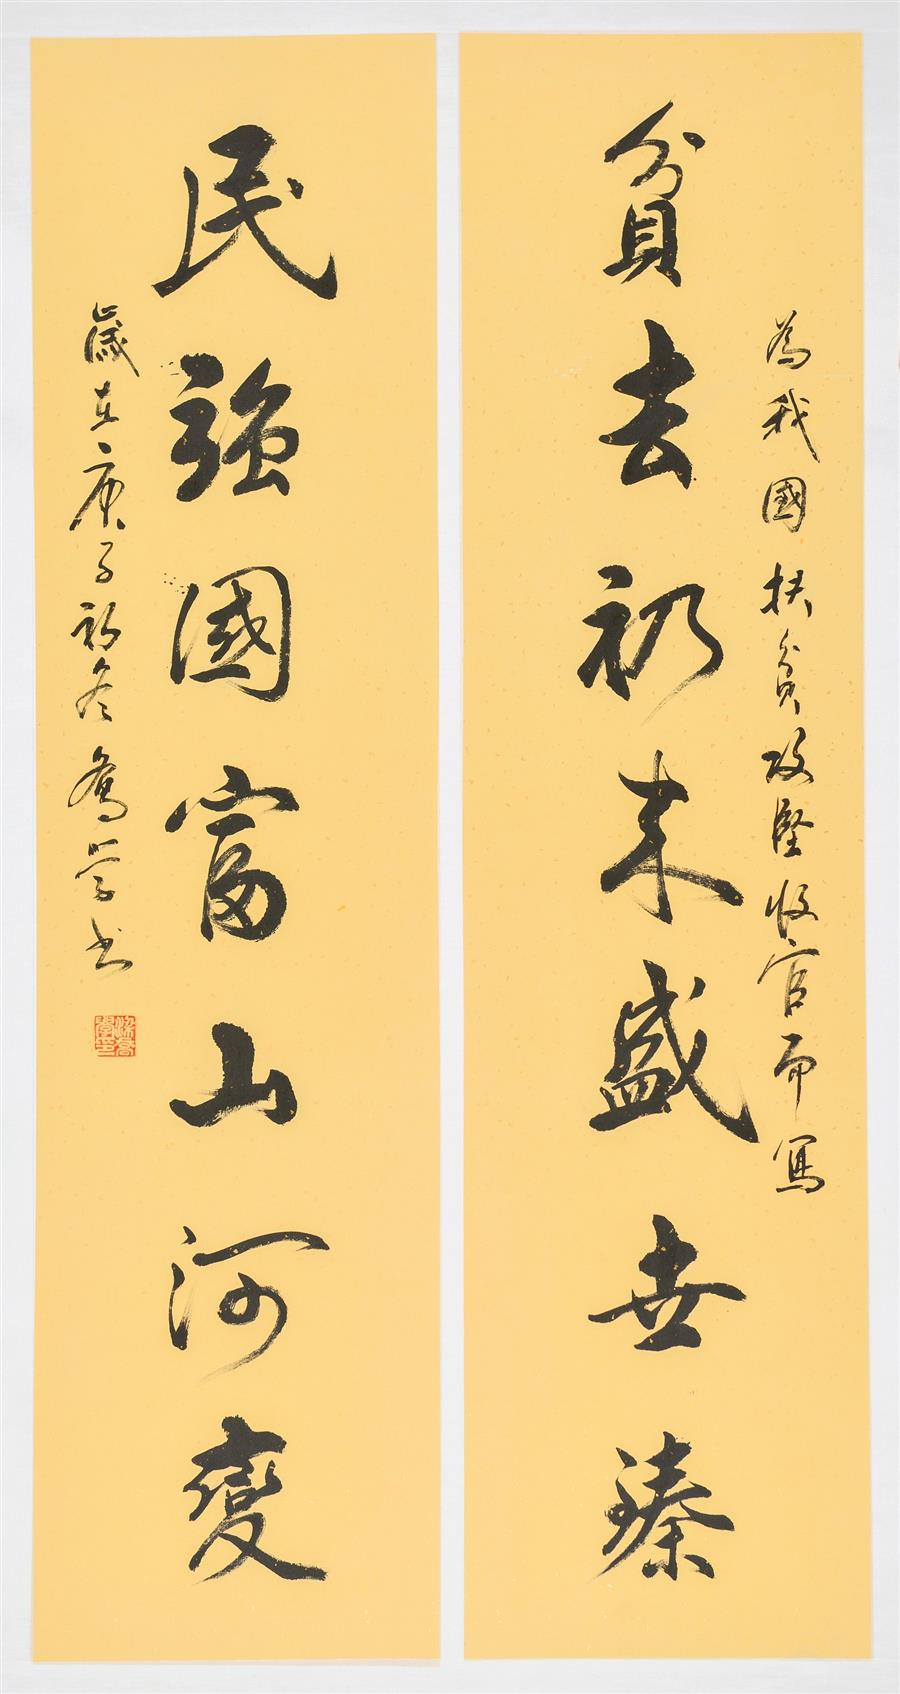 為我國扶貧攻堅收官而寫
貧去礽来盛世臻
民強國富山河變
歲在庚子初冬喬學书